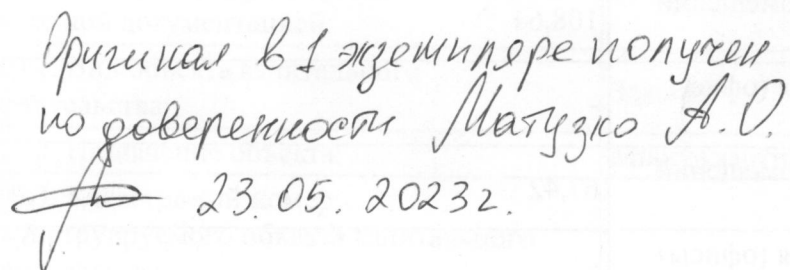 Оригинал в 1 экземпляре получен
по доверенности Матузко А.О.
23.05.2023г.